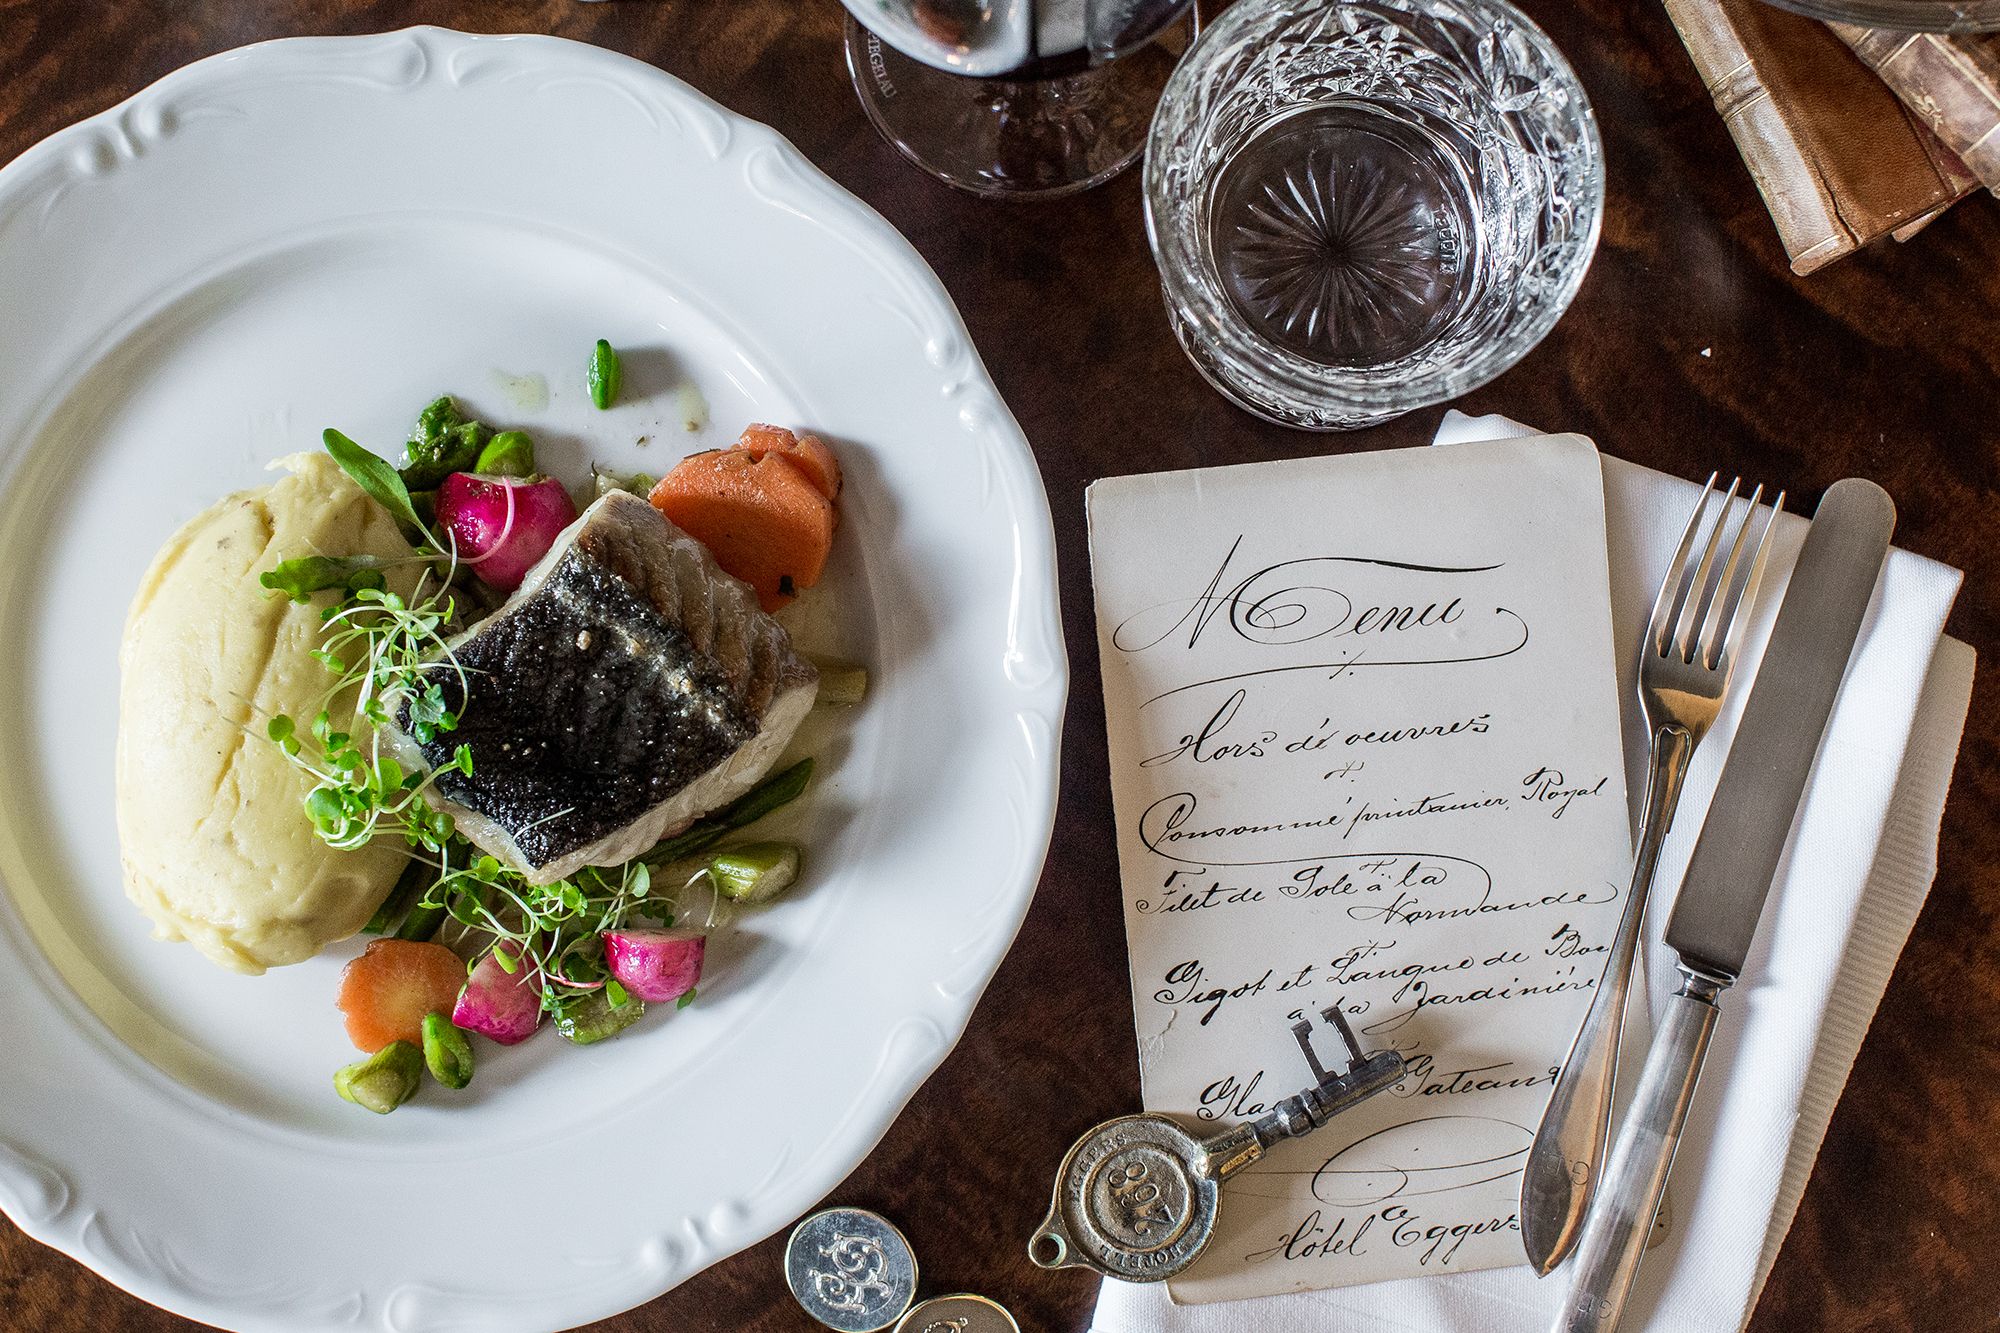 SPIEGELAU
Menu
Hors dé oeuvres
Consommé printanier, Royal
Filet de Sole à la
Normande
Gigot et Langue de
à la Jardinière
Hôtel Eggers
EGGERS
208
HOTELL